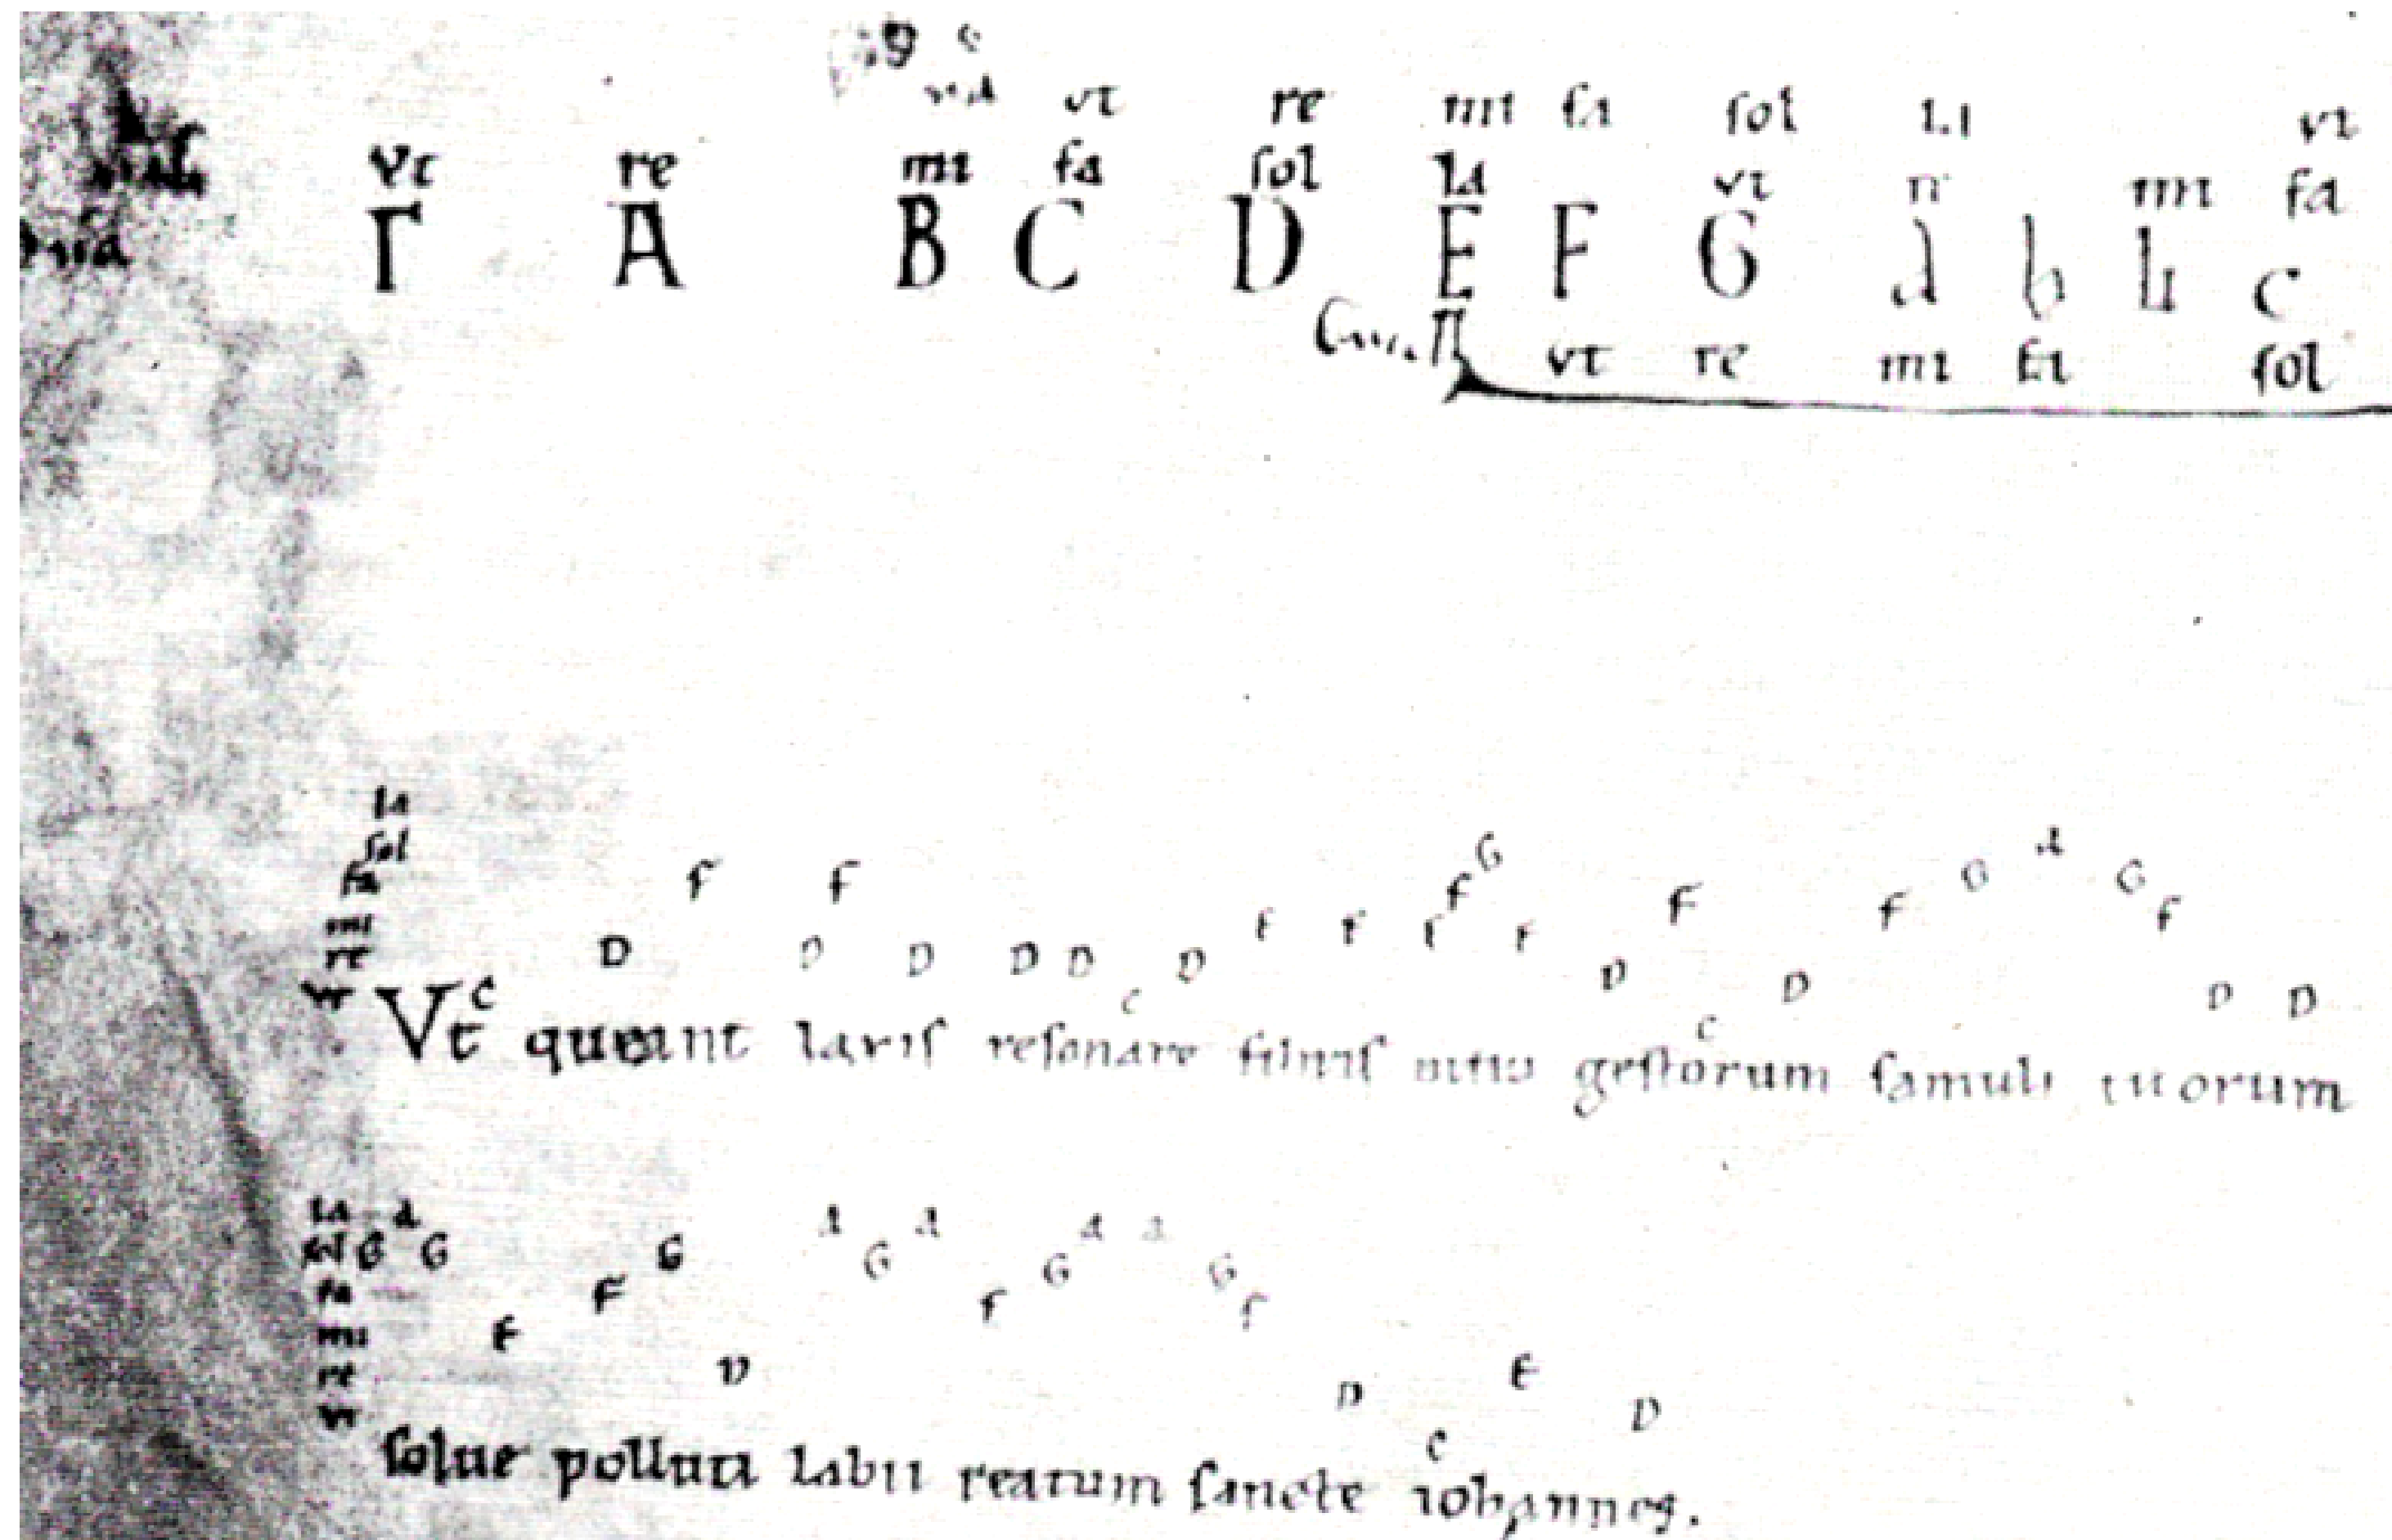 vt re mi fa sol la vt
vt re mi fa sol la vt re mi fa
Γ A B C D E F G a b h c
vt re mi fa sol
la
sol
fa
mi
re
vt
F F F G F G a G F
D D D D D D F F F F D D D D
C C C
Vt queant laxis resonare fibris mira gestorum famuli tuorum
la a a a a a
sol G G G G G G
fa F F F
mi E E
re D D D
vt C
solue polluti labii reatum sancte iohannes.